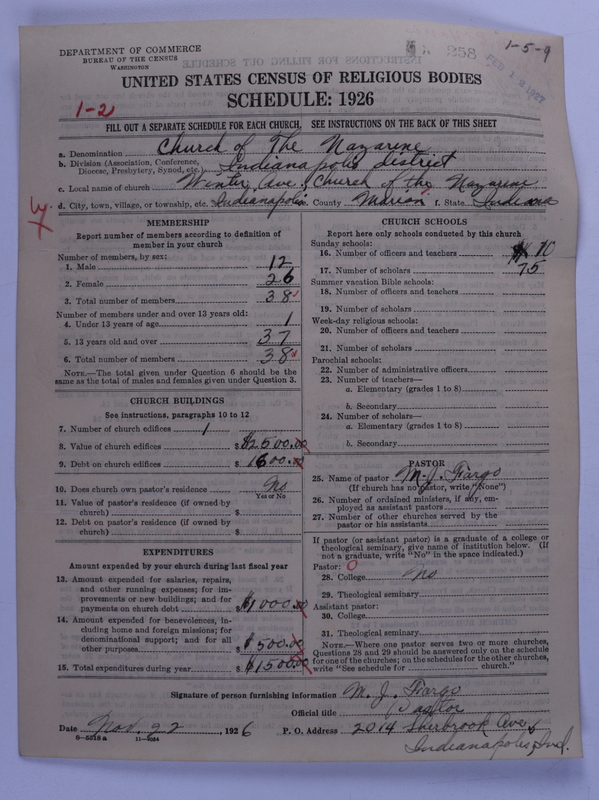 DEPARTMENT OF COMMERCE
BUREAU OF THE CENSUS
WASHINGTON
258
FEB 12 1927
1-5-9
UNITED STATES CENSUS OF RELIGIOUS BODIES
SCHEDULE: 1926
1-2
FILL OUT A SEPARATE SCHEDULE FOR EACH CHURCH. SEE INSTRUCTIONS ON THE BACK OF THIS SHEET
a. Denomination Church of The Nazarine
b. Division (Association, Conference, Diocese, Presbytery, Synod, etc.) Indianapolis district
c. Local name of church Winter Ave., Church of the Nazarine
d. City, town, village, or township, etc. Indianapolis. County Marion f. State Indiana
MEMBERSHIP
Report number of members according to definition of
member in your church
Number of members, by sex:
1. Male 12
2. Female 26
3. Total number of members 38
Number of members under and over 13 years old:
4. Under 13 years of age 1
5. 13 years old and over 37
6. Total number of members 38
NOTE.—The total given under Question 6 should be the
same as the total of males and females given under Question 3.
CHURCH BUILDINGS
See instructions, paragraphs 10 to 12
7. Number of church edifices 1
8. Value of church edifices $2500.00
9. Debt on church edifices $ 1600.00
10. Does church own pastor's residence No
Yes or No
11. Value of pastor's residence (if owned by
church) $
12. Debt on pastor's residence (if owned by
church) $
EXPENDITURES
Amount expended by your church during last fiscal year
13. Amount expended for salaries, repairs,
and other running expenses; for im-
provements or new buildings; and for
payments on church debt $1000.00
14. Amount expended for benevolences, in-
cluding home and foreign missions; for
denominational support; and for all
other purposes $500.00
15. Total expenditures during year $1500.00
CHURCH SCHOOLS
Report here only schools conducted by this church
Sunday schools:
16. Number of officers and teachers 10
17. Number of scholars 75
Summer vacation Bible schools:
18. Number of officers and teachers
19. Number of scholars
Week-day religious schools:
20. Number of officers and teachers
21. Number of scholars
Parochial schools:
22. Number of administrative officers
23. Number of teachers—
a. Elementary (grades 1 to 8)
b. Secondary
24. Number of scholars—
a. Elementary (grades 1 to 8)
b. Secondary
PASTOR
25. Name of pastor M. J. Fargo
(If church has no pastor, write "None")
26. Number of ordained ministers, if any, em-
ployed as assistant pastors
27. Number of other churches served by the
pastor or his assistants
If pastor (or assistant pastor) is a graduate of a college or
theological seminary, give name of institution below. (If
not a graduate, write "No" in the space indicated.)
Pastor: 0
28. College No
29. Theological seminary
Assistant pastor:
30. College
31. Theological seminary
NOTE.—Where one pastor serves two or more churches,
Questions 28 and 29 should be answered only on the schedule
for one of the churches; on the schedules for the other churches,
write "See schedule for church."
Signature of person furnishing information M. J. Fargo
Official title Pastor
Date Nov. 22, 1926 P. O. Address 2014 Sherbrook Ave,
Indianapolis, Ind.
6-5518a 11-9024